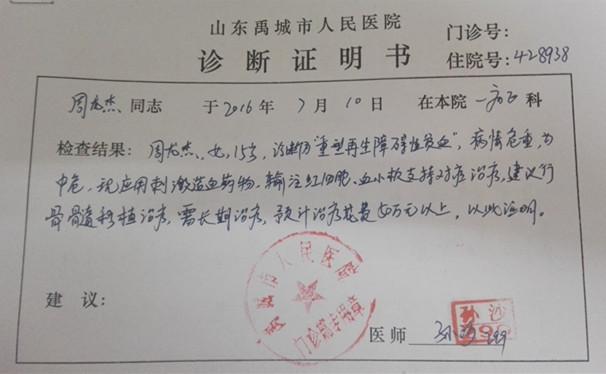 山东禹城市人民医院
门诊号:
诊断证明书
住院号:428938
周龙杰 同志 于2016年7月10日 在本院 科
检查结果: 周龙杰,女,15岁,诊断为"重型再生障碍性贫血",病情危重,为
中危,现应用刺激造血药物、输注红细胞、血小板支持对症治疗,建议行
骨髓移植治疗,需长期治疗,预计治疗花费50万元以上,以此证明。
建 议:
禹城市人民医院
门诊部专用章
医师